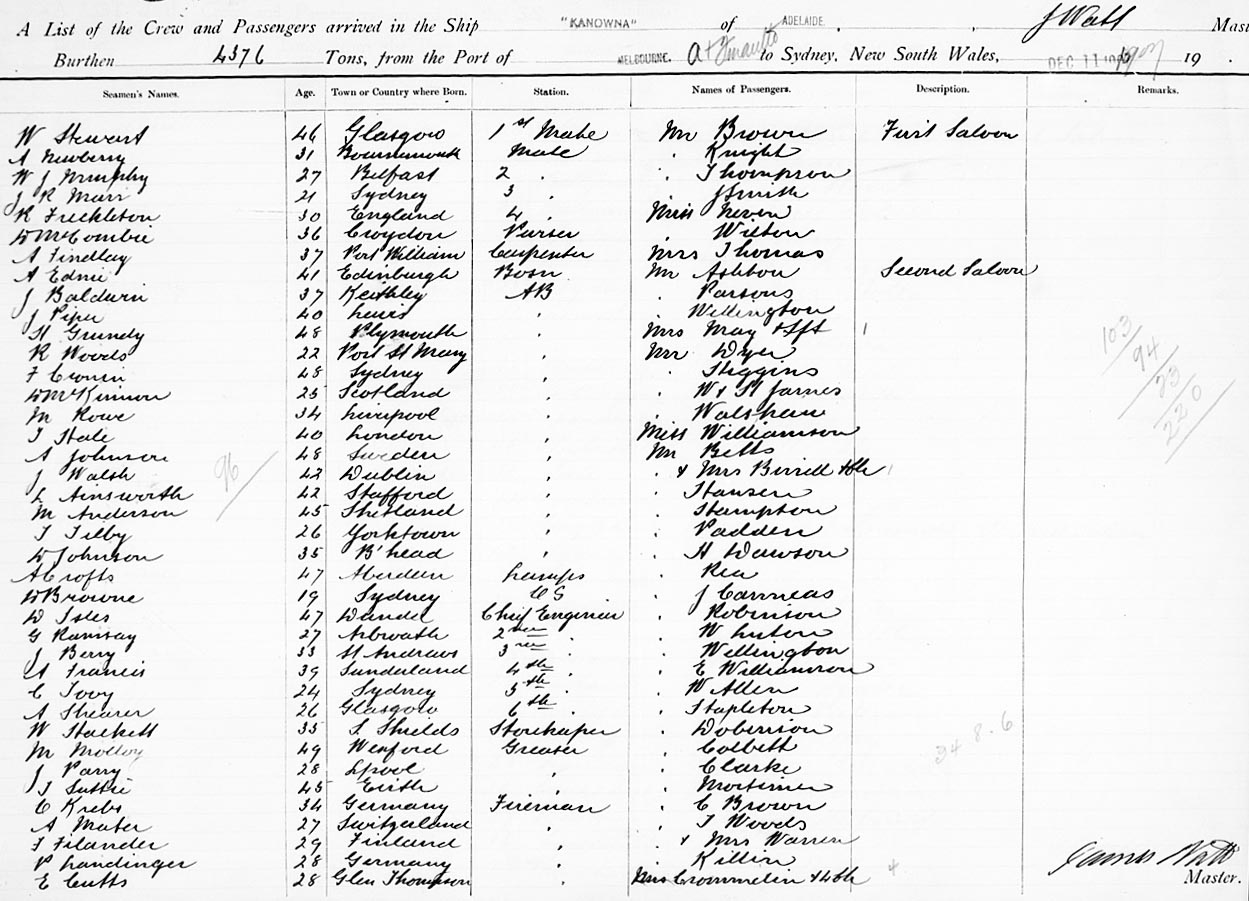 A List of the Crew and Passengers arrived in the Ship "KANOWNA" of ADELAIDE, J Watt Mast
Burthen 4376 Tons, from the Port of MELBOURNE. to Sydney, New South Wales, DEC 11 19
Seamen's Names. Age. Town or Country where Born. Station. Names of Passengers. Description. Remarks.
W Stewart 46 Glasgow 1st Mate Mr Brown First Saloon
A Newberry 31 Bournemouth Mate " Knight
W J Murphy 27 Belfast 2 " " Thompson
J R Marr 21 Sydney 3 " J Smith
R Freckleton 30 England 4 " Miss Neven
D McCombie 36 Croydon Purser " Wilson
A Findlay 37 Port William Carpenter Mrs Thomas
A Ednie 41 Edinburgh Bosn Mr Ashton Second Saloon
J Baldwin 37 Keithley AB " Parsons
J Piper 40 Lewis " " Wellington
H Grundy 48 Plymouth " Mrs May & Ift 1
R Woods 22 Port St Mary " Mr Dyer
F Cronin 48 Sydney " " Higgins
D McKinnon 25 Scotland " " W & H James
M Rowe 34 Liverpool " " Walshaw
T Hale 40 London " Miss Williamson
A Johnson 48 Sweden " Mr Betts
J Walsh 42 Dublin " " & Mrs Birrell & Ch 1
L Ainsworth 42 Stafford " " Hansen
M Anderson 45 Shetland " " Hampton
T Tilby 26 Yorktown " " Padden
D Johnson 35 B'head " " H Dawson
A Crofts 47 Aberdeen Lamps " Rea
D Browne 19 Sydney " J Carmeas
D Isles 47 Dundee Chief Engineer " Robinson
G Ramsay 27 Arbroath 2nd " " W
J Berry 33 St Andrews 3rd " " Wellington
A Francis 39 Sunderland 4th " " E Williamson
C Tovy 24 Sydney 5th " " W Allen
A Shearer 26 Glasgow 6th " " Stapleton
W Hackett 35 S. Shields Storekeeper " Dobinson
M Molloy 49 Wexford Greaser " Corbett
J Parry 28 Lpool " " Clarke
J Suttie 45 " " Mortimer
C Krebs 34 Germany Fireman " C Brown
A Mater 27 Switzerland " " T Woods
F Filander 29 Finland " " & Mrs Warren
P Landinger 28 Germany " " Killin
E Cutts 28 Glen Thompson " Mrs Crommelin & 4 Ch 4
96
103
94
23
220
34 8.6
James Watt
Master.